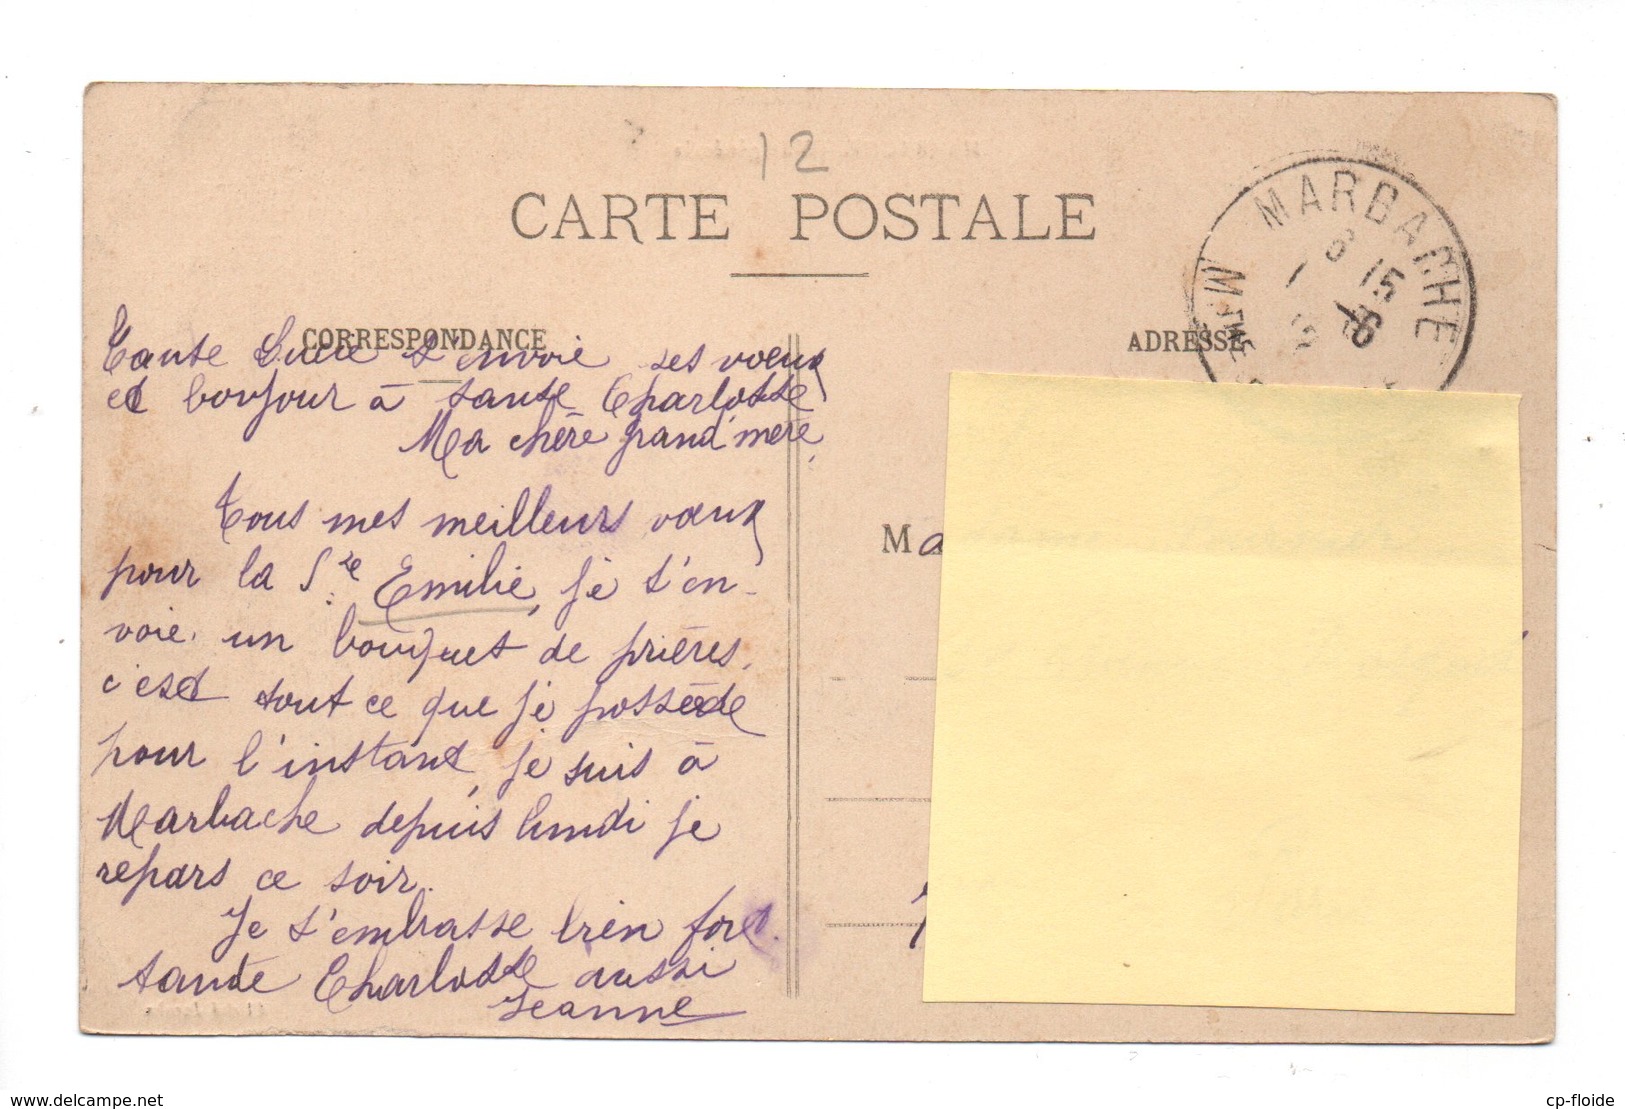 12
CARTE POSTALE
MARBACHE
8 15
CORRESPONDANCE
ADRESSE
Tante Lucie t'envoie ses voeux
et bonjour à tante Charlotte
Ma chère grand'mère,
Tous mes meilleurs voeux
pour la Ste Emilie, je t'en-
voie un bouquet de prières,
c'est tout ce que je possède
pour l'instant, je suis à
Marbache depuis lundi je
repars ce soir.
Je t'embrasse bien fort
tante Charlotte aussi
Jeanne
Ma
www.delcampe.net
cp-floide